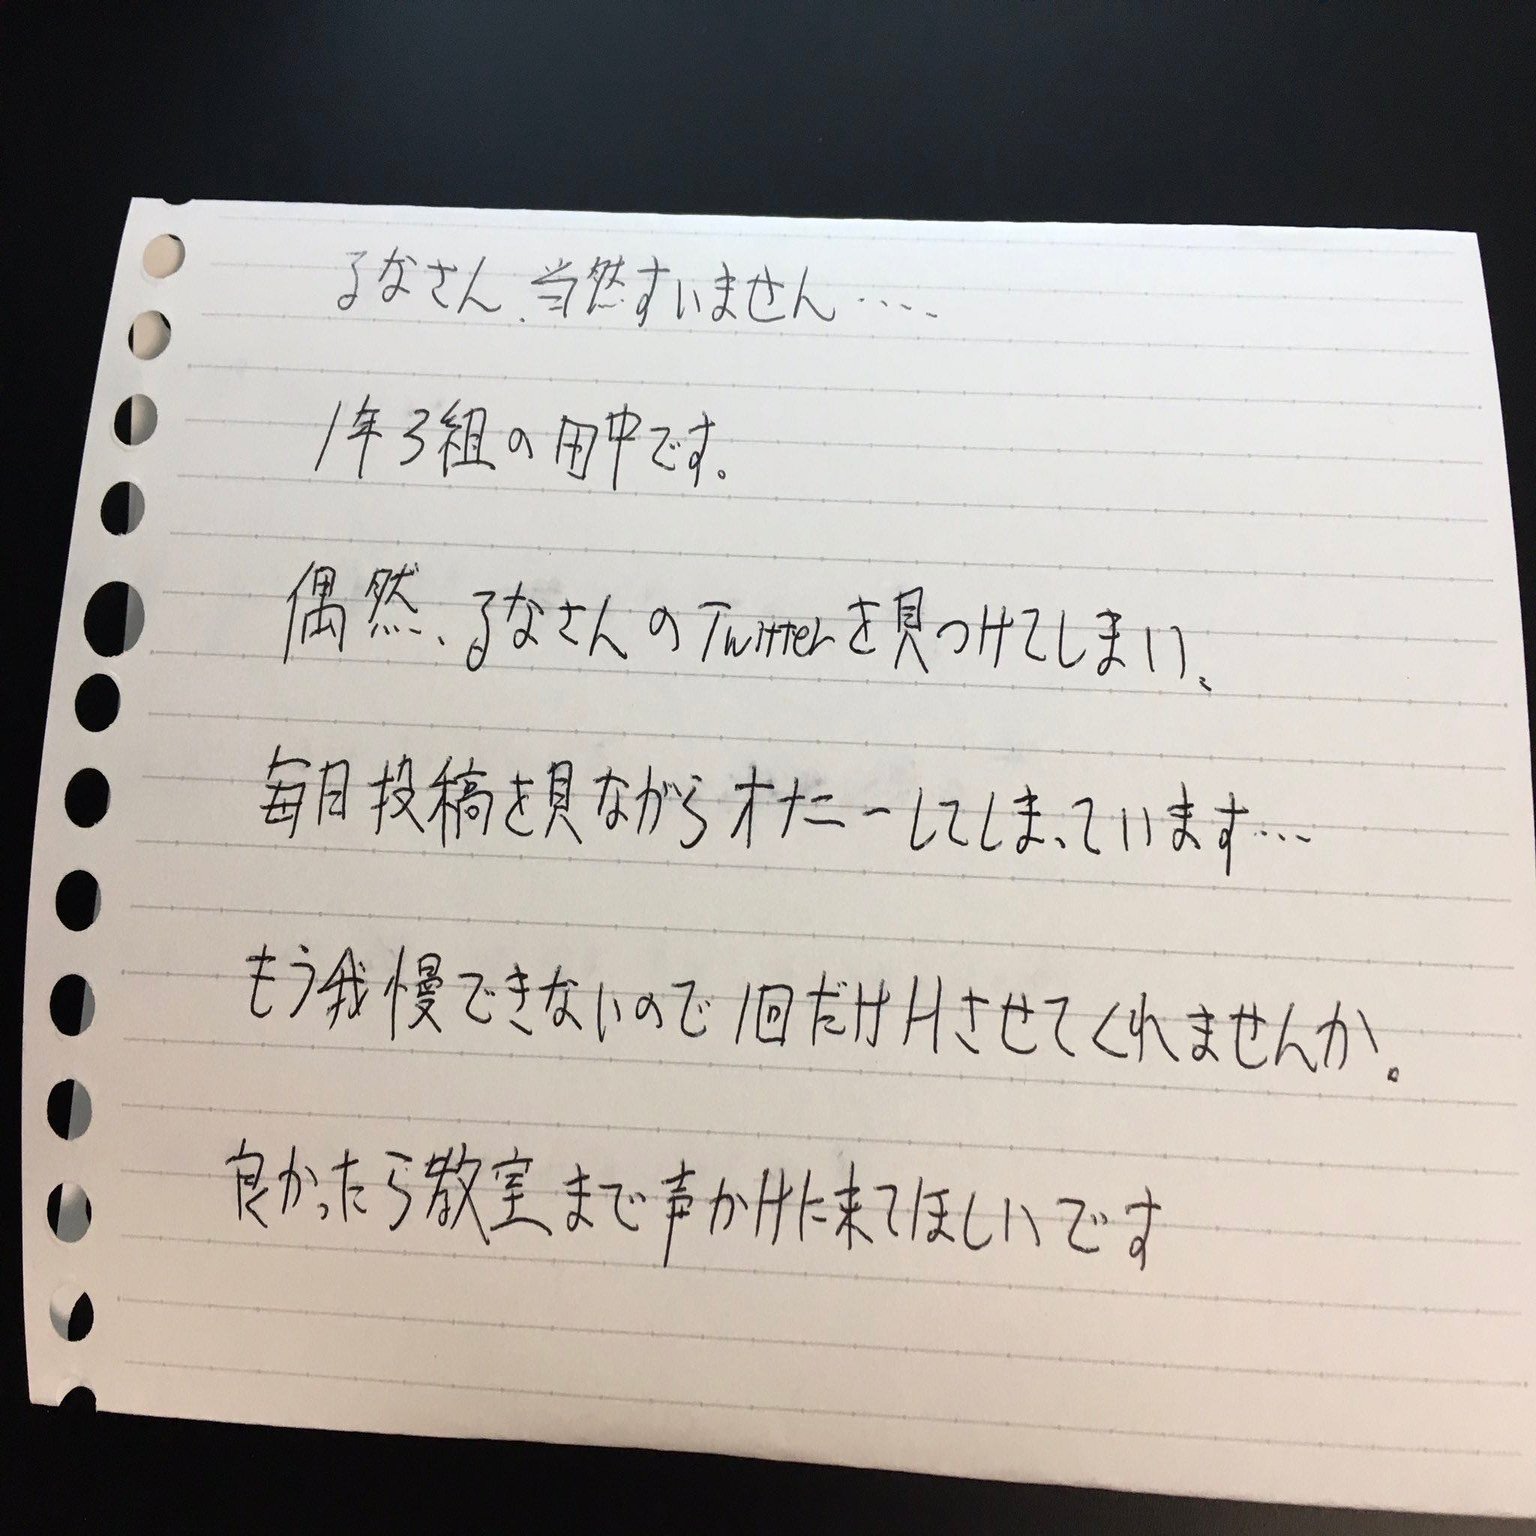 るなさん、当然すいません....
1年3組の田中です。
偶然、るなさんのTwitterを見つけてしまい、
毎日投稿を見ながらオナニーしてしまっています...
もう我慢できないので1回だけHさせてくれませんか。
良かったら教室まで声かけに来てほしいです